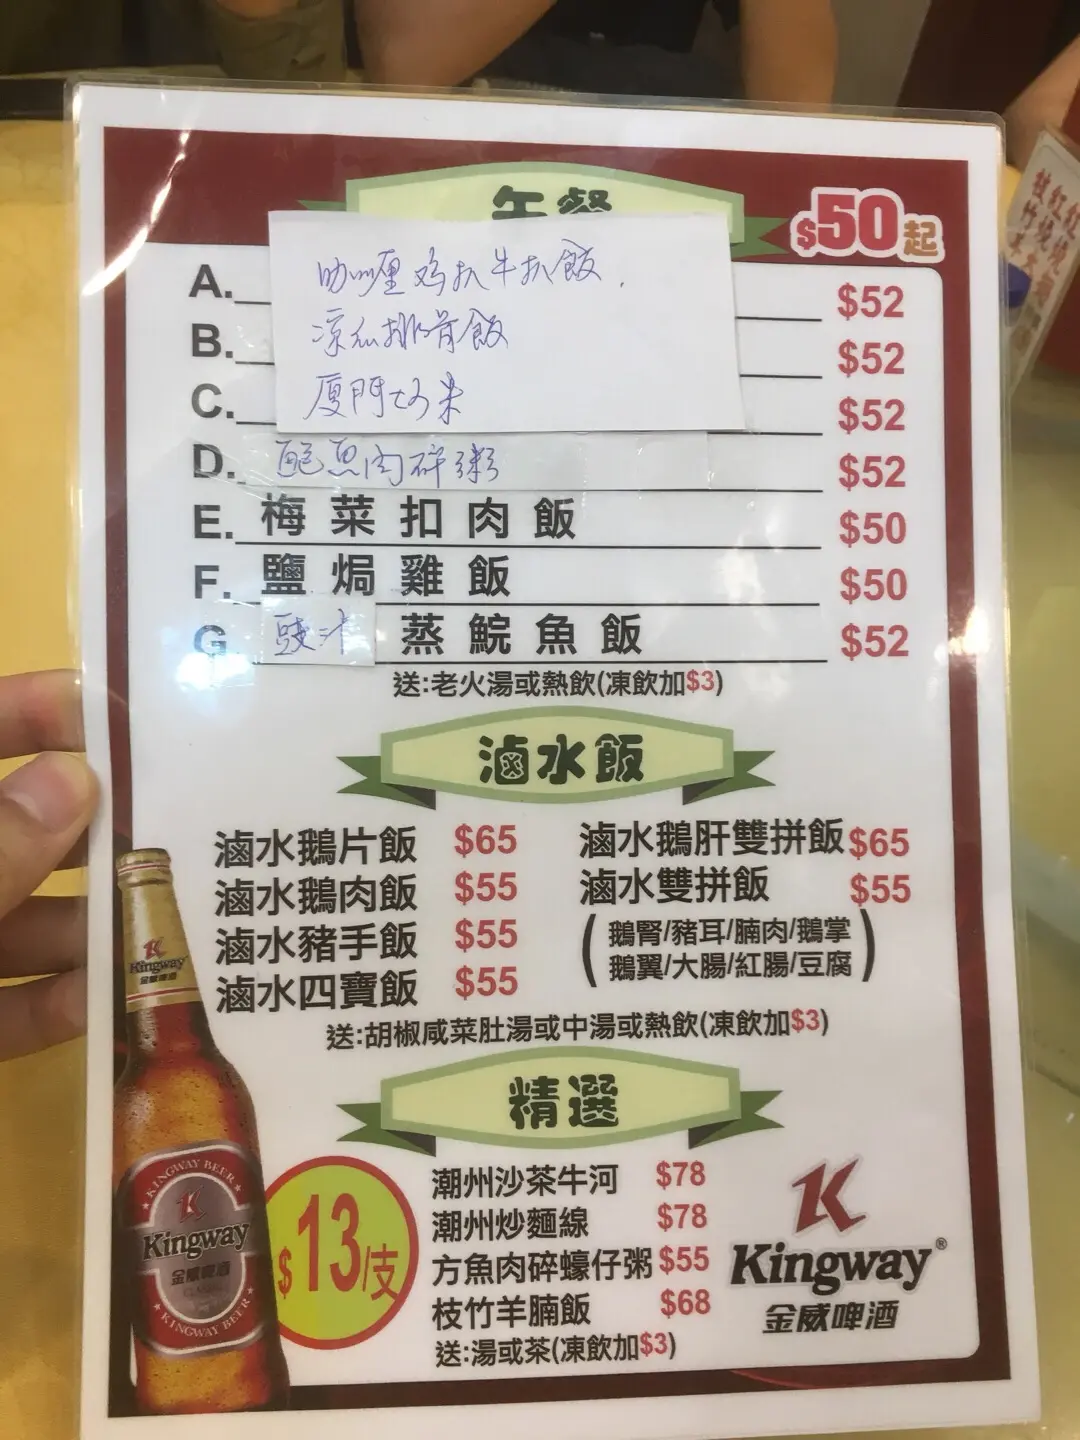 午餐
$50起
A. 咖喱鸡扒牛扒飯. $52
B. 凉瓜排骨飯 $52
C. 厦門炒米 $52
D. 鲍魚肉碎粥 $52
E. 梅菜扣肉飯 $50
F. 鹽焗雞飯 $50
G 豉汁 蒸鯇魚飯 $52
送:老火湯或熱飲(凍飲加$3)
滷水飯
滷水鵝片飯 $65
滷水鵝肉飯 $55
滷水豬手飯 $55
滷水四寶飯 $55
滷水鵝肝雙拼飯 $65
滷水雙拼飯 $55
(鵝腎/豬耳/腩肉/鵝掌
鵝翼/大腸/紅腸/豆腐)
送:胡椒咸菜肚湯或中湯或熱飲(凍飲加$3)
精選
潮州沙茶牛河 $78
潮州炒麵線 $78
方魚肉碎蠔仔粥 $55
枝竹羊腩飯 $68
送:湯或茶(凍飲加$3)
$13/支
K
Kingway®
金威啤酒
Kingway
金威啤酒
KINGWAY BEER
Kingway
金威啤酒
KINGWAY BEER